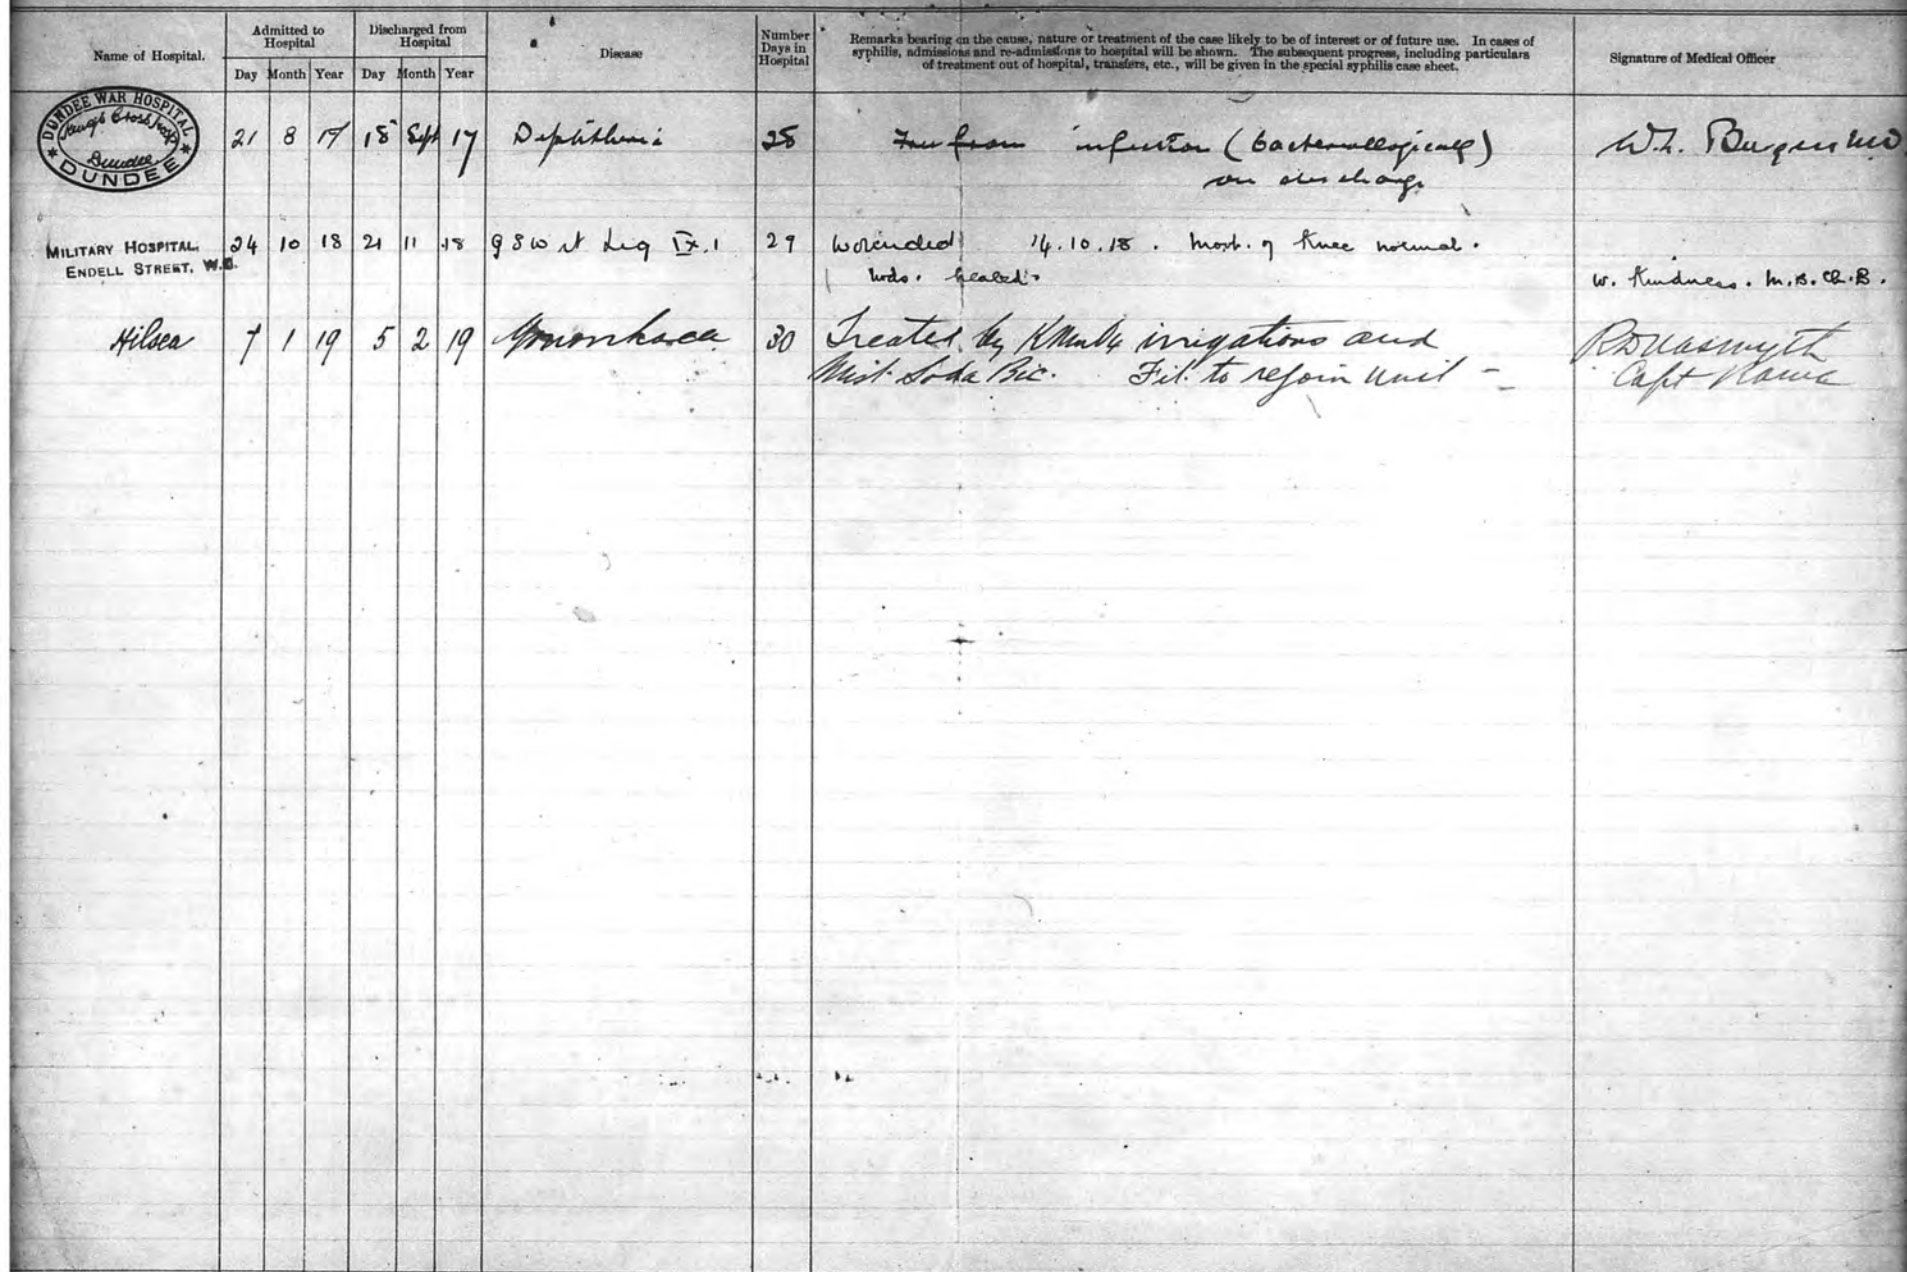 Name of Hospital.
Admitted to Hospital
Day Month Year
Discharged from Hospital
Day Month Year
Disease
Number Days in Hospital
Remarks bearing on the cause, nature or treatment of the case likely to be of interest or of future use. In cases of
syphilis, admissions and re-admissions to hospital will be shown. The subsequent progress, including particulars
of treatment out of hospital, transfers, etc., will be given in the special syphilis case sheet.
Signature of Medical Officer
DUNDEE WAR HOSPITAL
King's Cross Hosp
Dundee
DUNDEE
21 8 17 18 Sept 17 Diphtheria 28 Free from infection (bacteriologically) W.L. Burgess MD
on discharge
MILITARY HOSPITAL,
ENDELL STREET, W.C.
24 10 18 21 11 18 GSW rt Leg IX.1 29 Wounded 14.10.18. Movt. of Knee normal.
Wds. healed.
W. Kindness. M.B. Ch.B.
Hilsea 7 1 19 5 2 19 Gonorrhoea 30 Treated by KMnO4 irrigations and
Mist Soda Bic. Fit to rejoin Unit -
Capt RAMC